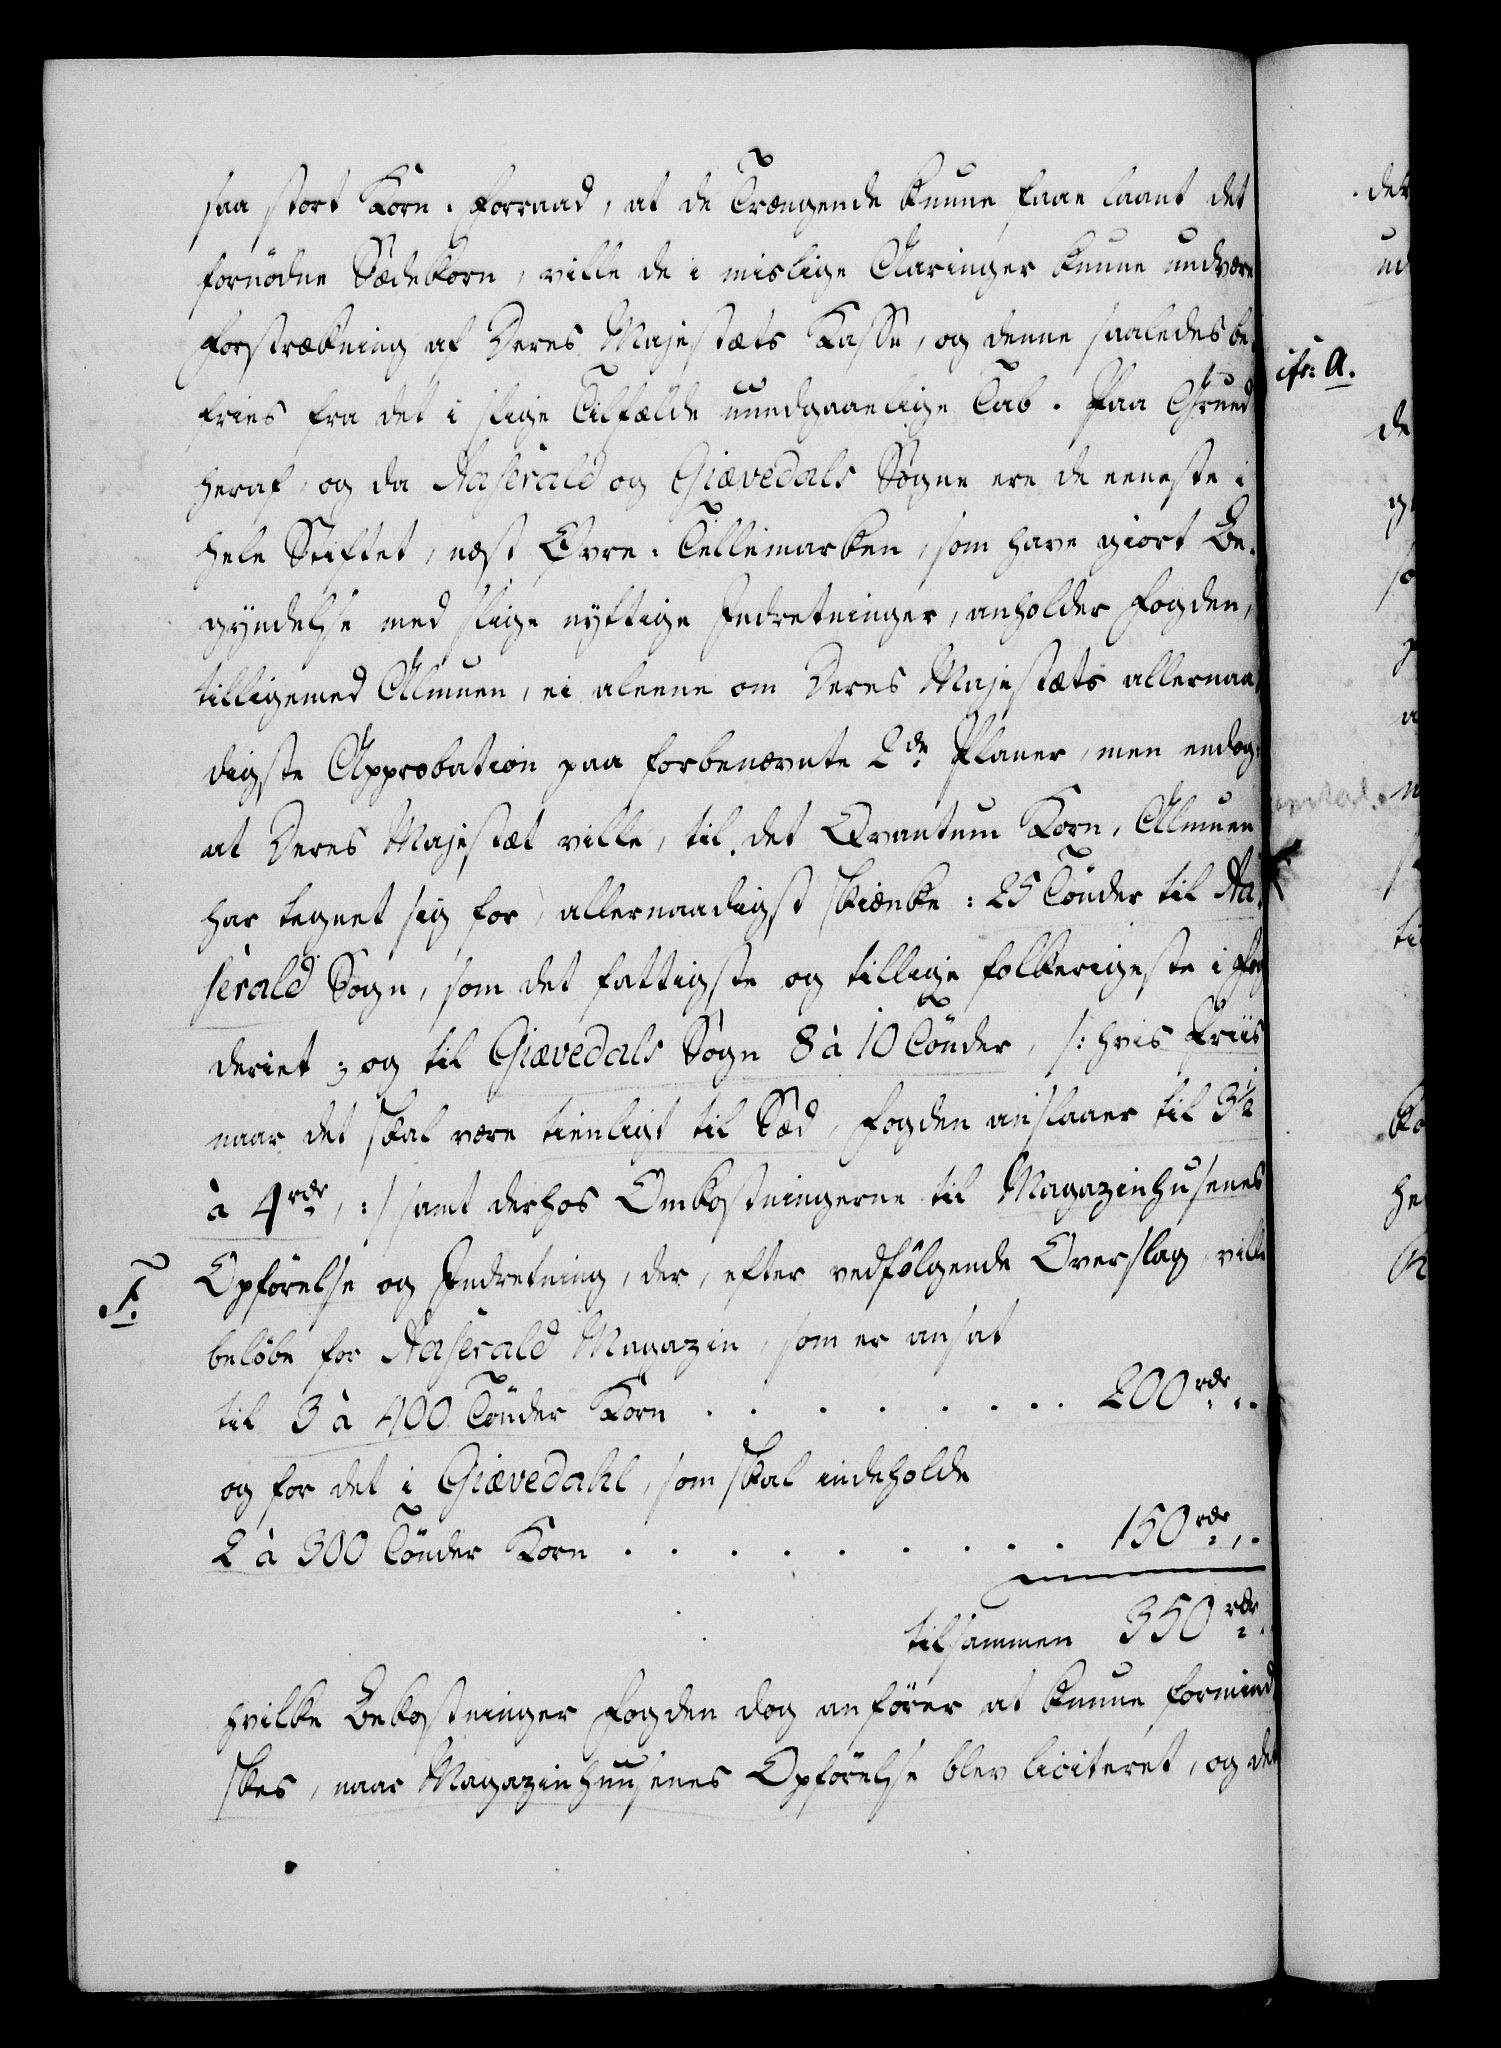 saa stort Korn-Forraad, at de Trængende kunne faae laant det
fornödne Sædekorn, ville de i mislige Aaringer kunne undvære
Forstrækning af Deres Majestæts Kasse, og denne saaledes be-
fries fra det i slige Tilfælde uundgaaelige Tab. Paa Grund
heraf, og da Aaserald og Giævedals Sogne ere de eeneste i
hele Stiftet, næst Øvre-Tellemarken, som have giort Be-
gyndelse med slige nyttige Indretninger, anholder Fogden,
tilligemed Almuen, ei aleene om Deres Majestæts allernaa-
digste Approbation paa forbenævnte 2de Planer, men endog
at Deres Majestæt ville, til det Qvantum Korn, Almuen
har tegnet sig for, allernaadigst skienke: 25 Tönder til Aa-
serald Sogn, som det fattigste og tillige folkerigeste i Fog
deriet; og til Giævedals Sogn 8 à 10 Tönder, /: hvis Priis
naar det skal være tienligt til Sæd, Fogden anslaaer til 3½
à 4 rdr, :/ samt derhos Omkostningerne til Magazinhusenes
F. Opförelse og Indretning, der, efter vedfölgende Overslag, ville
belöbe for Aaserald Magazin, som er ansat
til 3 à 400 Tönder Korn . . . . . . . . 200 rdr „
og for det i Giævedahl, som skal indeholde
2 à 300 Tönder Korn . . . . . . . . . 150 rdr „
tilsammen 350 rdr
hvilke Bekostninger Fogden dog anförer at kunne formind
skes, naar Magazinhuusenes Opförelse blev liciteret, og det
ifr: A.